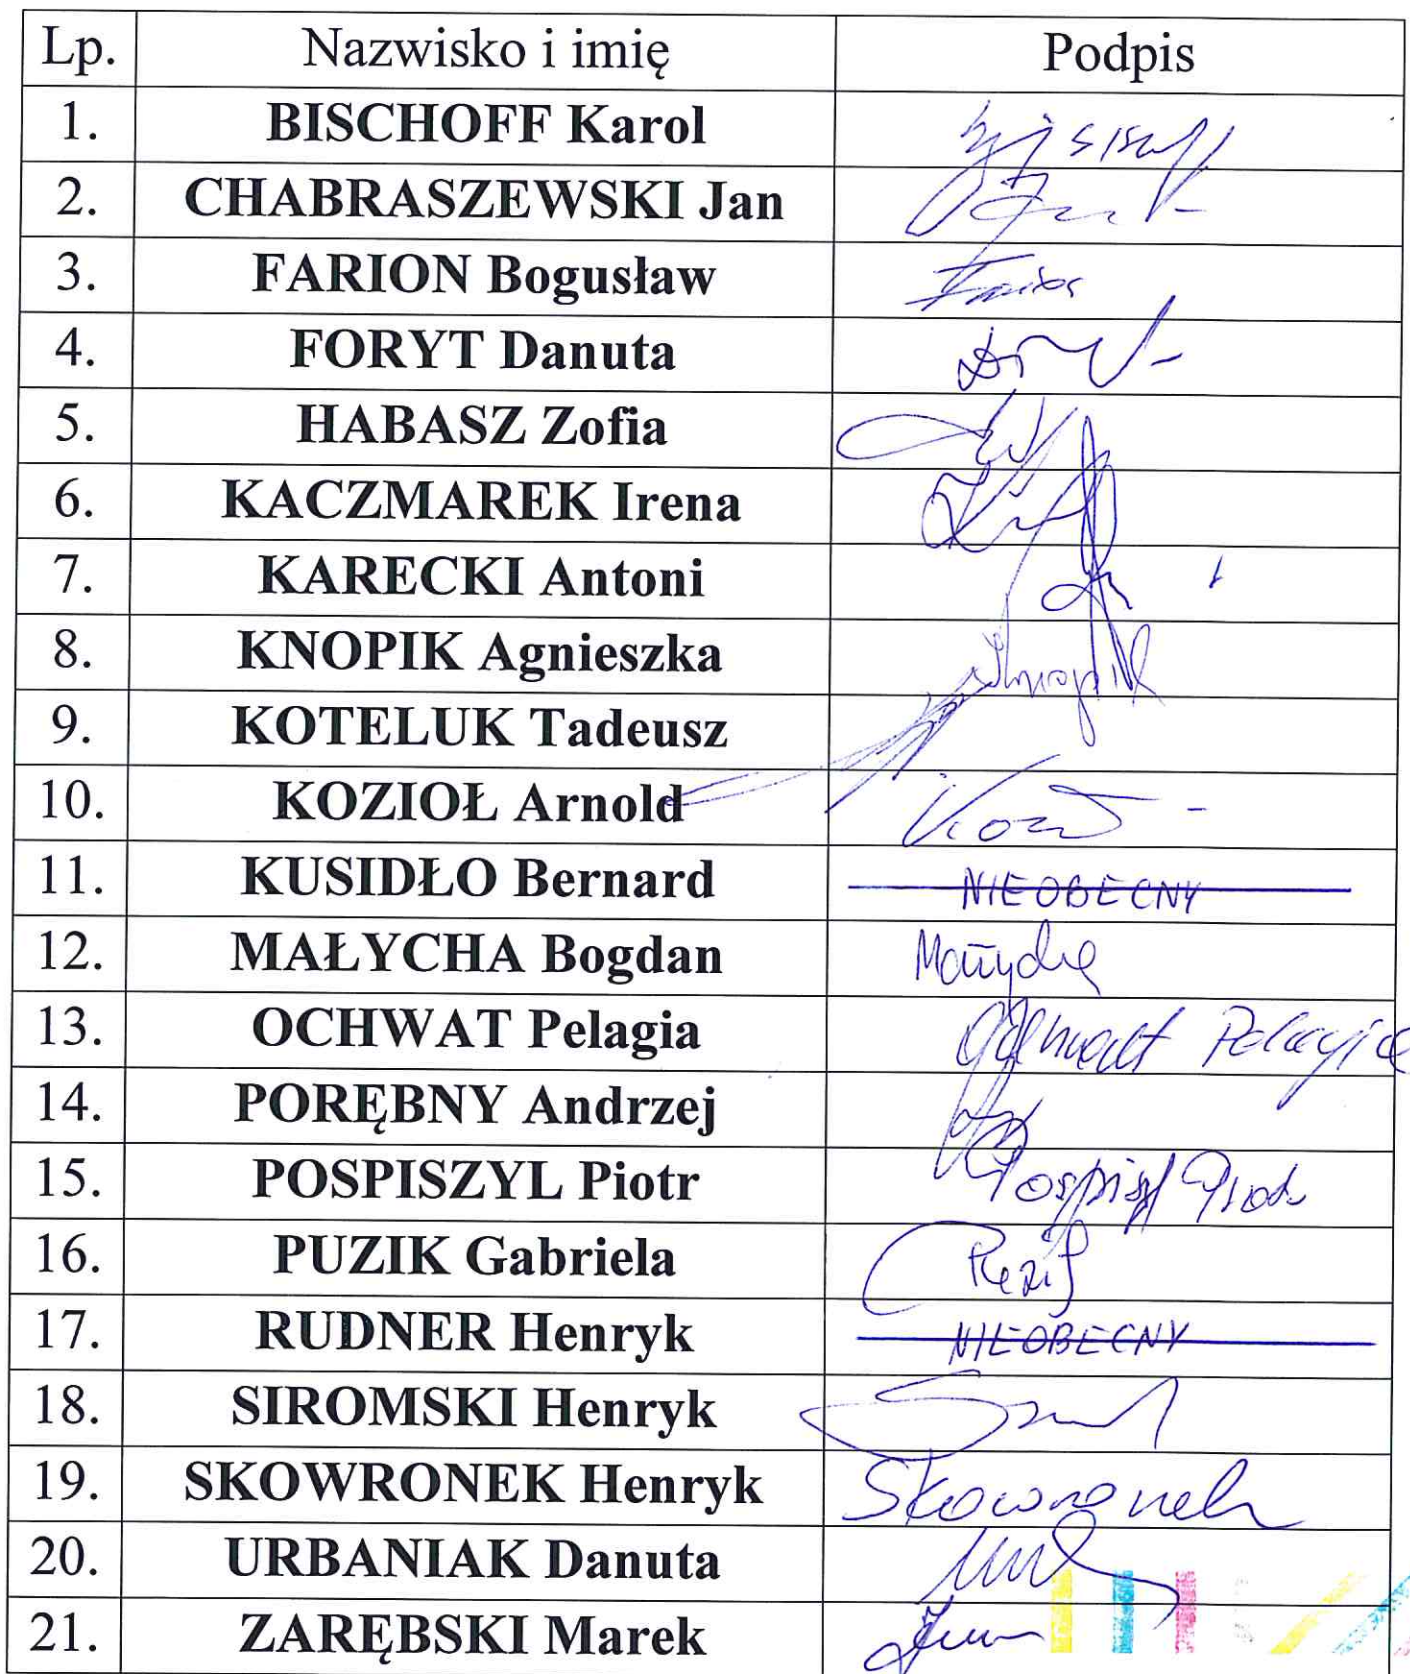 Lp. Nazwisko i imię Podpis
1. BISCHOFF Karol
2. CHABRASZEWSKI Jan
3. FARION Bogusław
4. FORYT Danuta
5. HABASZ Zofia
6. KACZMAREK Irena
7. KARECKI Antoni
8. KNOPIK Agnieszka
9. KOTELUK Tadeusz
10. KOZIOŁ Arnold
11. KUSIDŁO Bernard NIEOBECNY
12. MAŁYCHA Bogdan Małycha
13. OCHWAT Pelagia Ochwat Pelagia
14. PORĘBNY Andrzej
15. POSPISZYL Piotr
16. PUZIK Gabriela
17. RUDNER Henryk NIEOBECNY
18. SIROMSKI Henryk
19. SKOWRONEK Henryk Skowronek
20. URBANIAK Danuta
21. ZARĘBSKI Marek